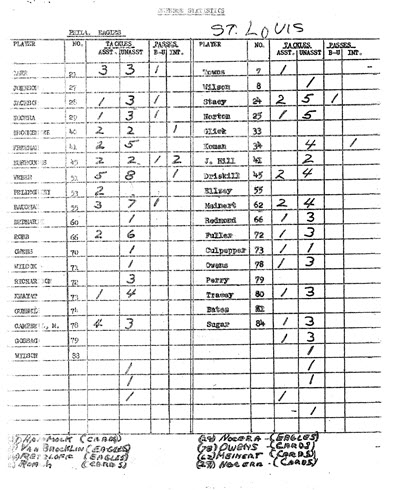 DEFENSE STATISTICS
PHILA. EAGLES ST. LOUIS
PLAYER NO. TACKLES PASSES PLAYER NO. TACKLES PASSES
ASST. UNASST B-U INT. ASST. UNASST B-U INT.
21 3 3 1 Towns 7 1 -
JOHNSON 27 Wilson 8 1
JACKSON 28 1 3 1 Stacy 24 2 5 1
NOCERA 29 1 3 1 Norton 25 1 5
40 2 2 1 Glick 33
41 2 5 Koman 34 4 1
45 2 2 1 2 J. Hill 41 2
WEBER 51 5 8 1 Driskill 45 2 4
53 2 Ellzey 55
BAUGHAN 55 3 7 1 Meinert 62 2 4
60 1 Redmond 66 1 3
ROSS 66 2 6 Fuller 72 1 3
70 1 Culpepper 73 1 1
WILCOX 71 1 Owens 78 1 3
RICHARDSON 72 3 Perry 79
KHAYAT 73 1 4 Tracey 80 1 3
GUNNELS 74 Bates 81
CAMPBELL, M. 78 4 3 Sugar 84 1 3
GOSSAGE 79 1 3
WILSON 88 1
1 1
1 1
1 1
- 1
HAMMOCK (CARDS) (29) NOCERA - (EAGLES)
VAN BROCKLIN (EAGLES) (78) OWENS (CARDS)
RETZLAFF (EAGLES) (62) MEINERT - (CARDS)
ROACH (CARDS) (29) NOCERA - (CARDS)